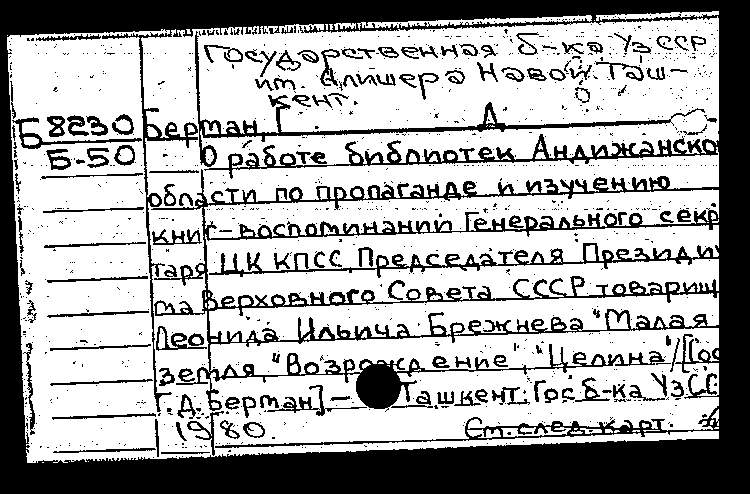 Государственная б-ка УзССР
им. Алишера Навои. Таш-
кент.
Б8230 Берман, Г. Д.
Б-50 О работе библиотек Андижанско
области по пропаганде и изучению
книг-воспоминаний Генерального секр
таря ЦК КПСС, Председателя Президиу
ма Верховного Совета СССР товарищ
Леонида Ильича Брежнева "Малая
земля, "Возрождение", "Целина"/[Сос
Г.Д. Берман].- Ташкент: Гос б-ка УзСС
1980. См. след. карт.